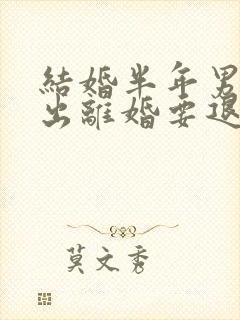 結婚半年男
出離婚要退
莫文秀